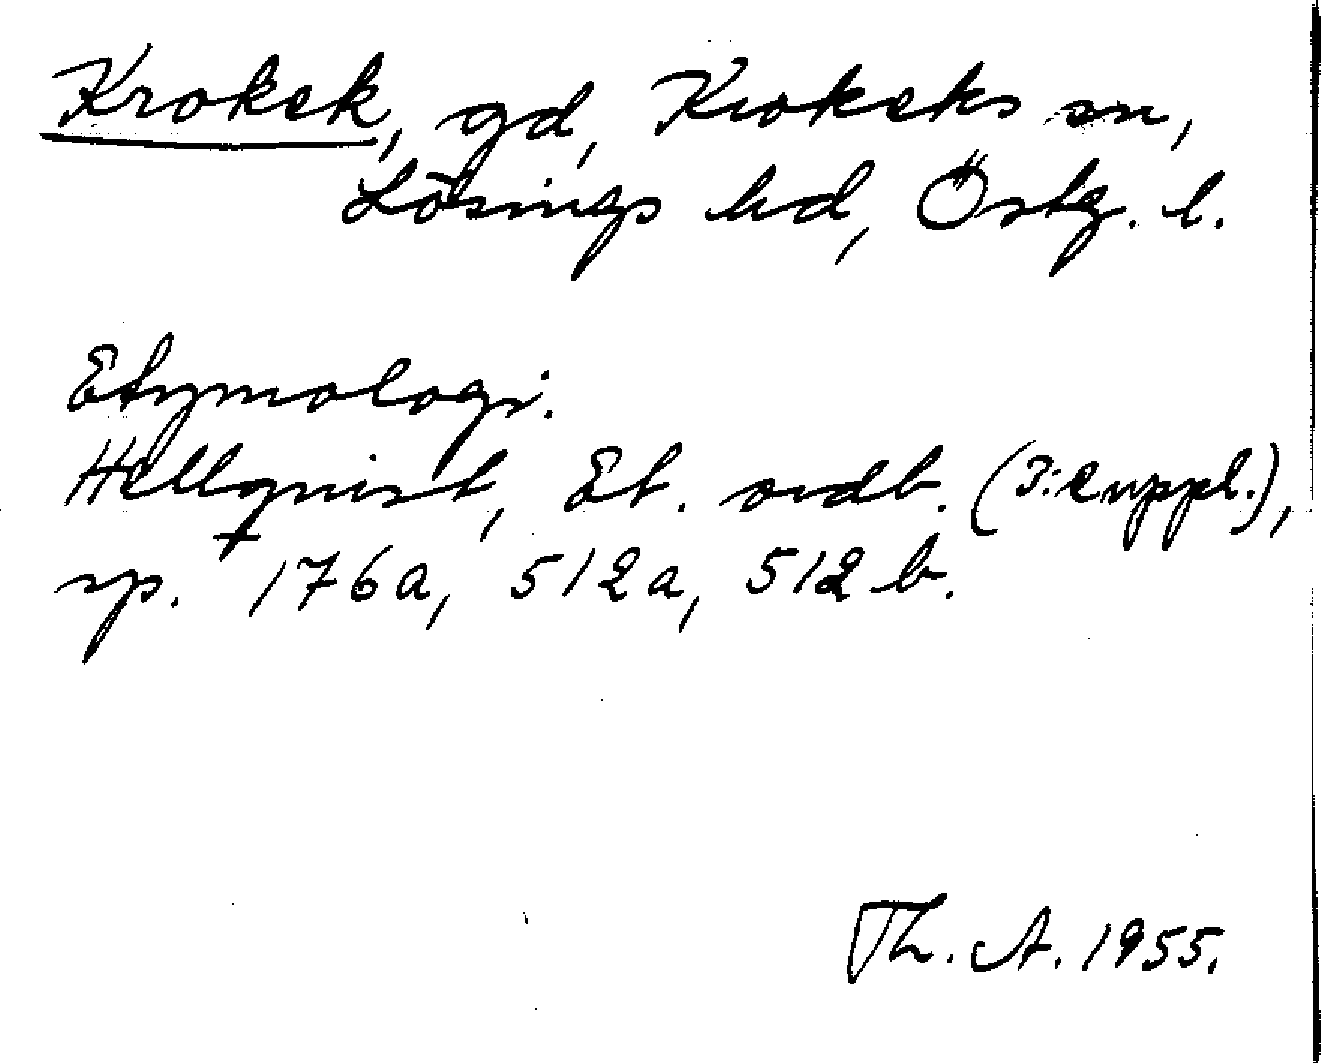 Krokek, gd, Krokeks sn,
Lösings hd, Östg. l.
Etymologi.
Hellquist, Et. ordb. (3:e uppl.),
sp. 176a, 512a, 512b.
Th. A. 1955.